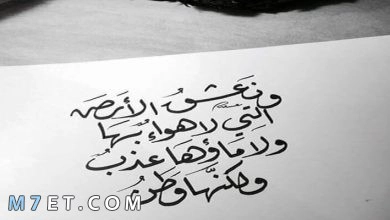 ونَعشقُ الأرضَ
التي لا هواءٌ بها
ولا ماؤها عذبٌ
ولكنها وطنُ
M7ET.COM